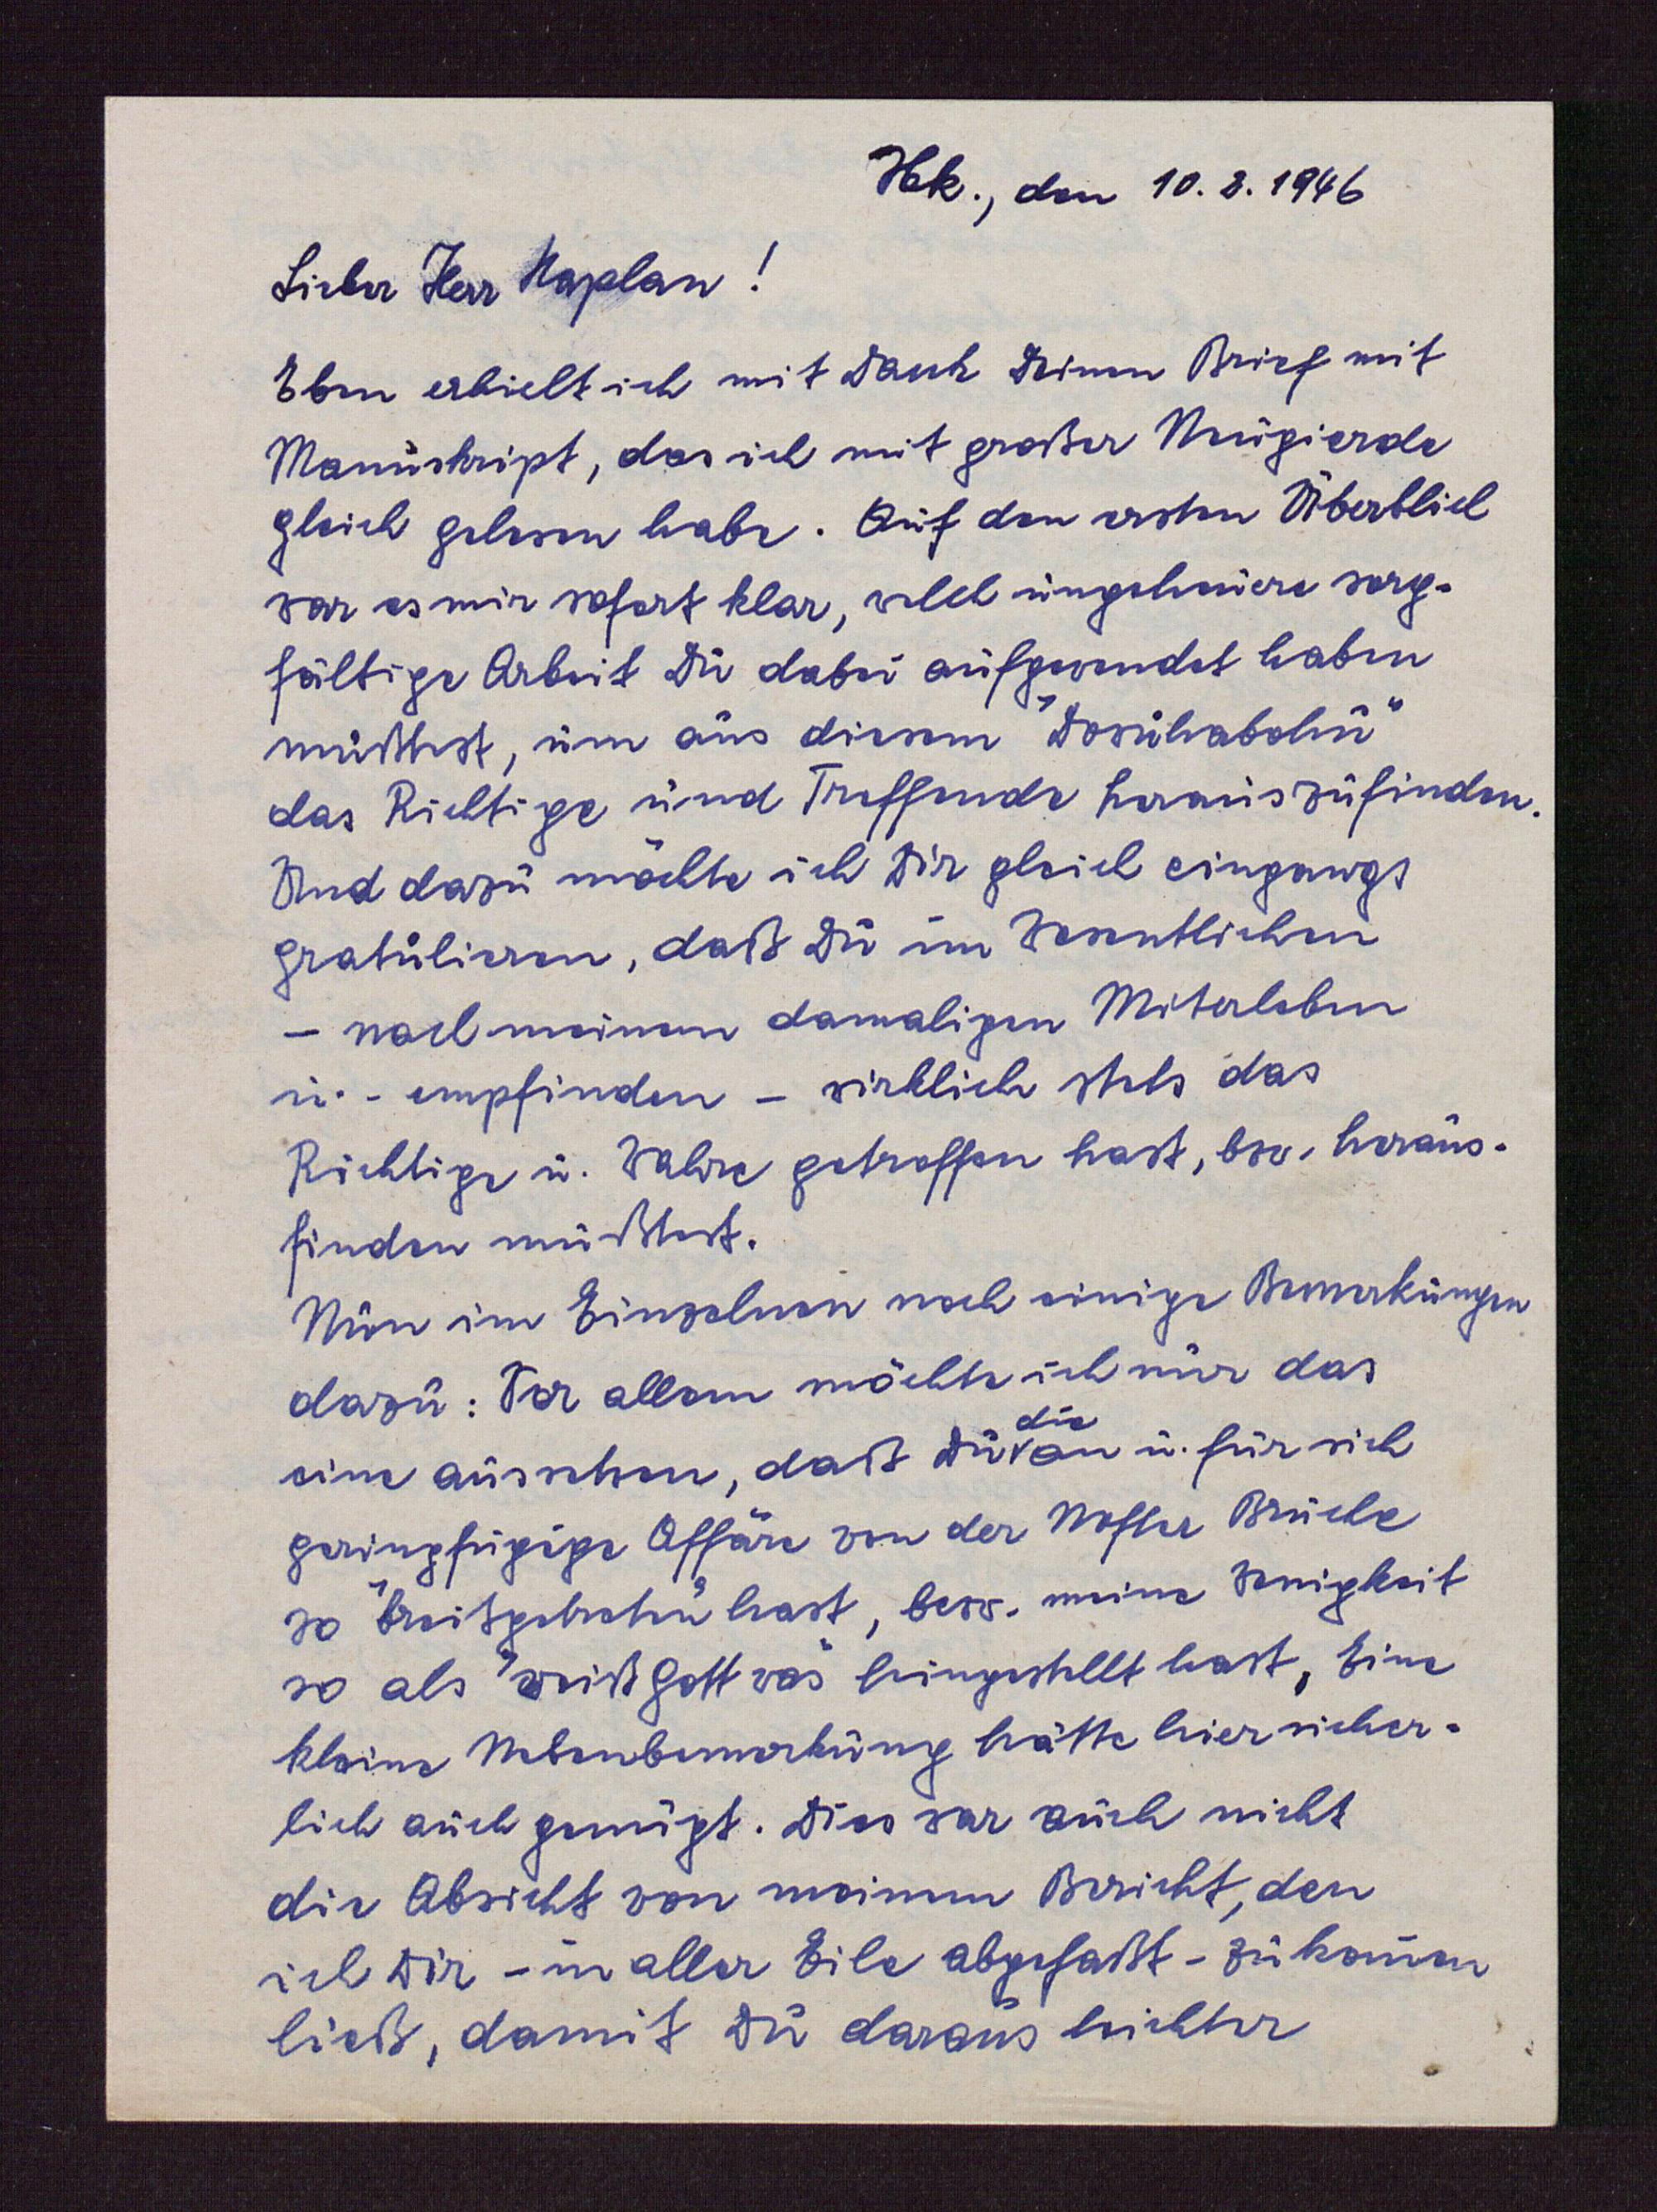 Hbk., den 10.8.1946
Lieber Herr Kaplan!
Eben erhielt ich mit Dank Deinen Brief mit
Manuskript, das ich mit großer Neugierde
gleich gelesen habe. Auf den ersten Überblick
war es mir sofort klar, welch ungeheuere sorg-
fältige Arbeit Du dabei aufgewendet haben
mußtest, um aus diesem "Dosuhabohu"
das Richtige und Treffende herauszufinden.
Und dazu möchte ich Dir gleich eingangs
gratulieren, daß Du im Wesentlichen
– nach meinem damaligen Miterleben
u. - empfinden – wirklich stets das
Richtige u. Wahre getroffen hast, bzw. heraus-
finden mußtest.
Nun im Einzelnen noch einige Bemerkungen
dazu: Vor allem möchte ich nur das
eine aussetzen, daß Du die an u. für sich
geringfügige Affäre von der Noffer Brücke
so "breitgetreten" hast, bezw. meine Wenigkeit
so als "weiß Gott was" hingestellt hast, Eine
kleine Nebenbemerkung hätte hier sicher-
lich auch genügt. Dies war auch nicht
die Absicht von meinem Bericht, den
ich Dir – in aller Eile abgefaßt – zukommen
ließ, damit Du daraus leichter